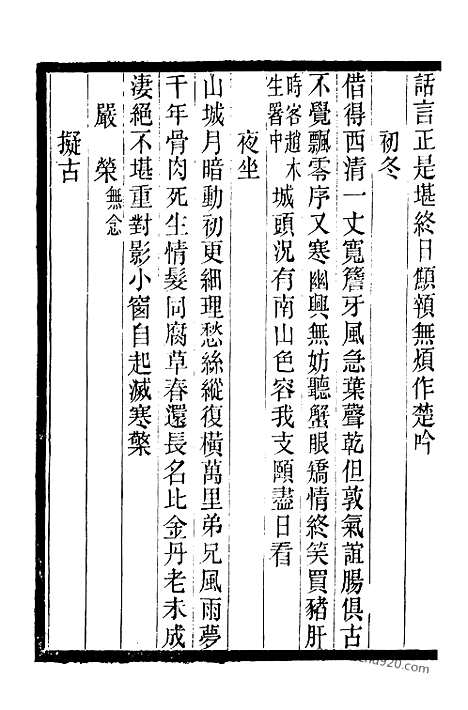 話言正是堪終日顦顇無煩作楚吟
初冬
借得西清一丈寬簷牙風急葉聲乾但敦氣誼腸俱古
不覺飄零序又寒幽興無妨聽蟹眼矯情終笑買豬肝
時客趙木生署中城頭況有南山色容我支頤盡日看
夜坐
山城月暗動初更細理愁絲縱復橫萬里弟兄風雨夢
千年骨肉死生情髮同腐草春還長名比金丹老未成
淒絕不堪重對影小窗自起滅寒檠
嚴榮無念
擬古